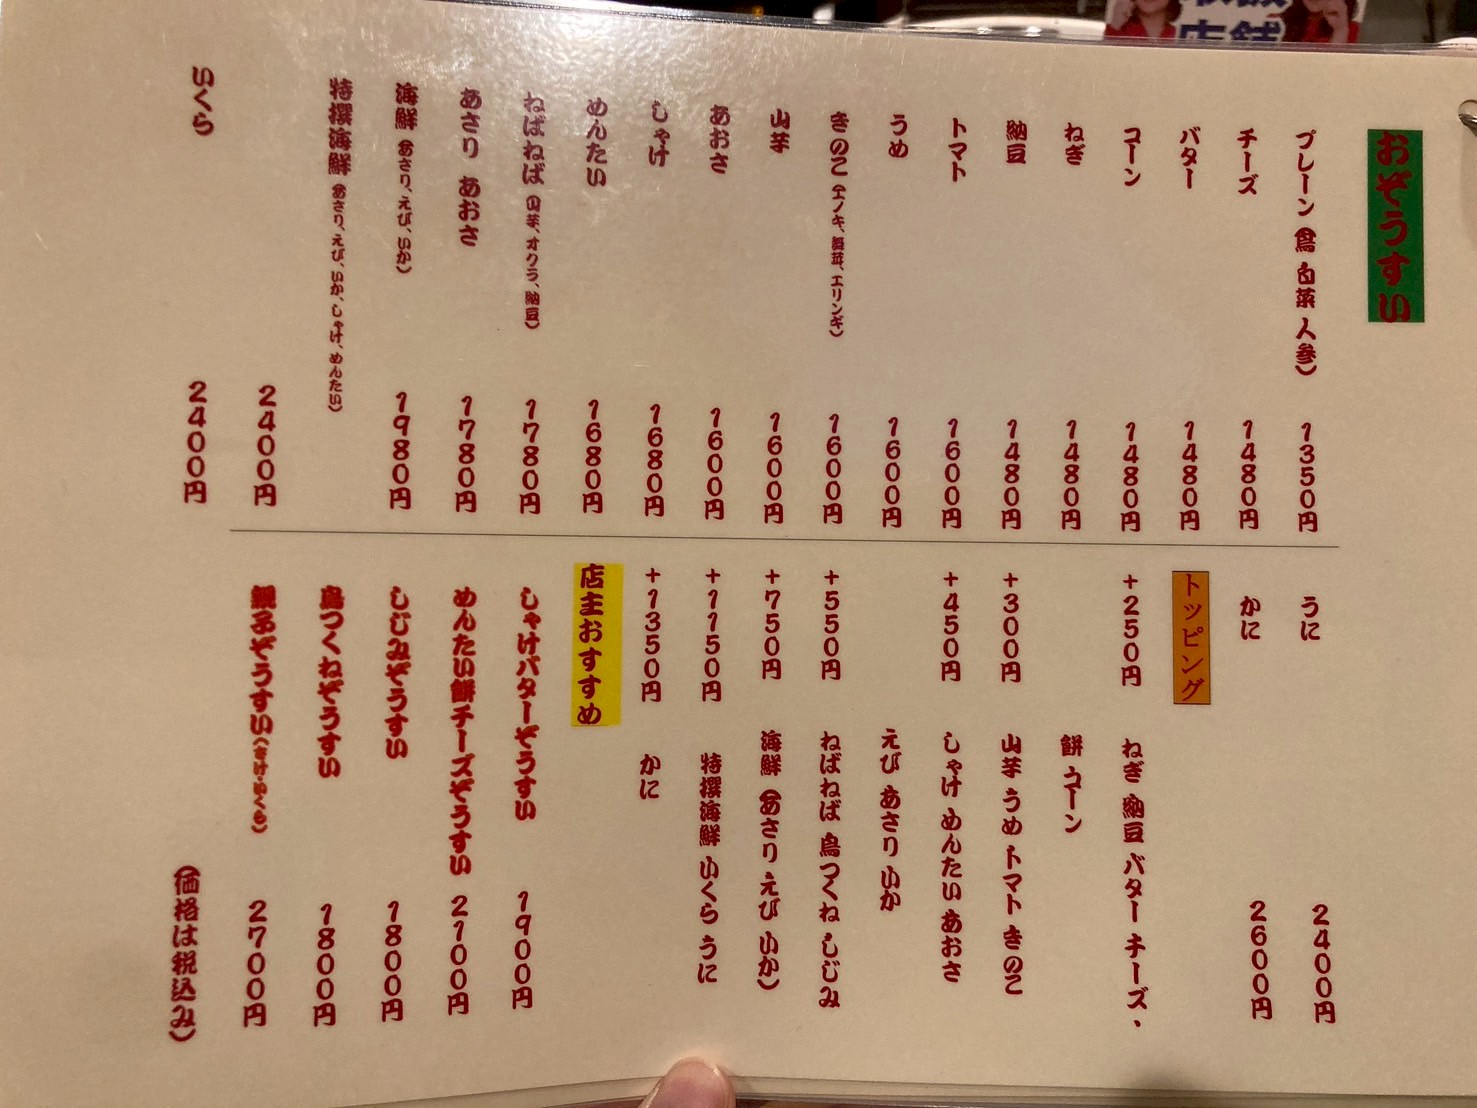 おぞうすい
プレーン（鳥 白菜 人参） 1350円
チーズ 1480円
バター 1480円
コーン 1480円
ねぎ 1480円
納豆 1480円
トマト 1600円
うめ 1600円
きのこ（エノキ、舞茸、エリンギ） 1600円
山芋 1600円
あおさ 1600円
しゃけ 1680円
めんたい 1680円
ねばねば（山芋、オクラ、納豆） 1780円
あさり あおさ 1780円
海鮮（あさり、えび、いか） 1980円
特撰海鮮（あさり、えび、いか、しゃけ、めんたい）
2400円
いくら 2400円
うに 2400円
かに 2600円
トッピング
+250円 ねぎ 納豆 バター チーズ、
餅 コーン
+300円 山芋 うめ トマト きのこ
+450円 しゃけ めんたい あおさ
えび あさり いか
+550円 ねばねば 鳥つくね しじみ
+750円 海鮮（あさり えび いか）
+1150円 特撰海鮮 いくら うに
+1350円 かに
店主おすすめ
しゃけバターぞうすい 1900円
めんたい餅チーズぞうすい 2100円
しじみぞうすい 1800円
鳥つくねぞうすい 1800円
親子ぞうすい（さけ・いくら） 2700円
（価格は税込み）
店舗